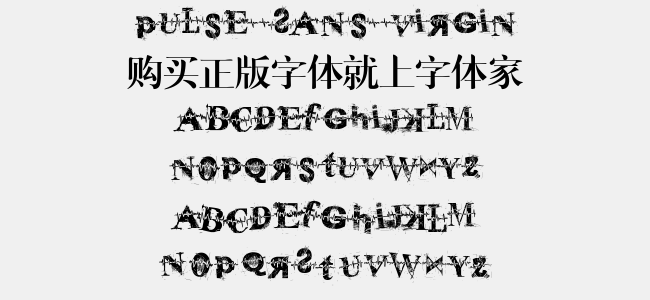 PULSE SANS VIRGIN
购买正版字体就上字体家
ABCDEfGhiJKLM
NOPQRStUVWXYZ
ABCDEfGhiJKLM
NOPQRStUVWXYZ